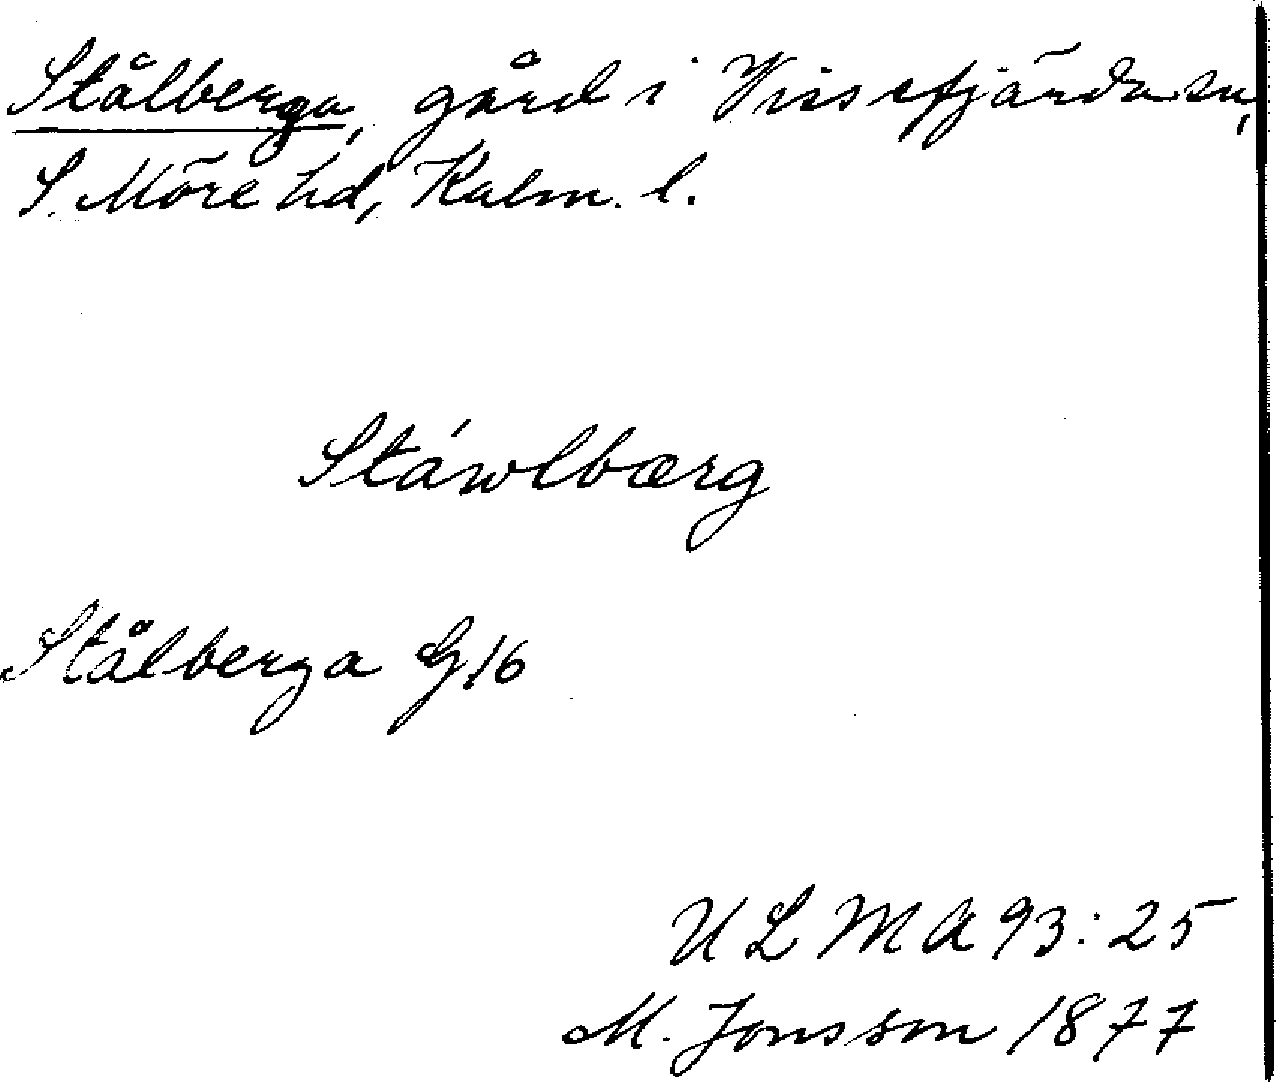 Stålberga, gård i Vissefjärda sn,
S. Möre hd, Kalm. l.
Stáwlbærg
Stålberga G16
ULMA 93:25
M. Jonsson 1877